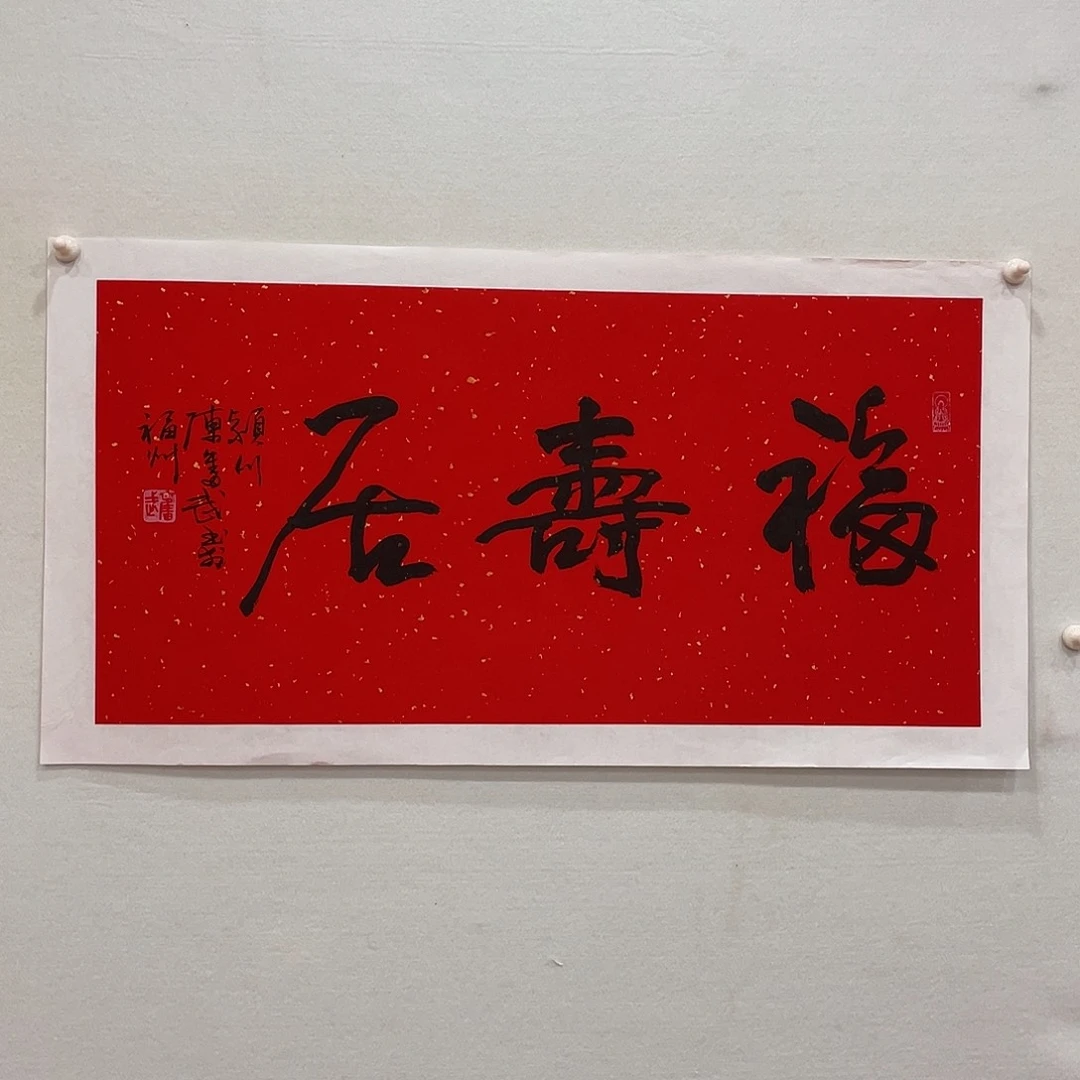 福壽居
潁川
陳奮武書
福州